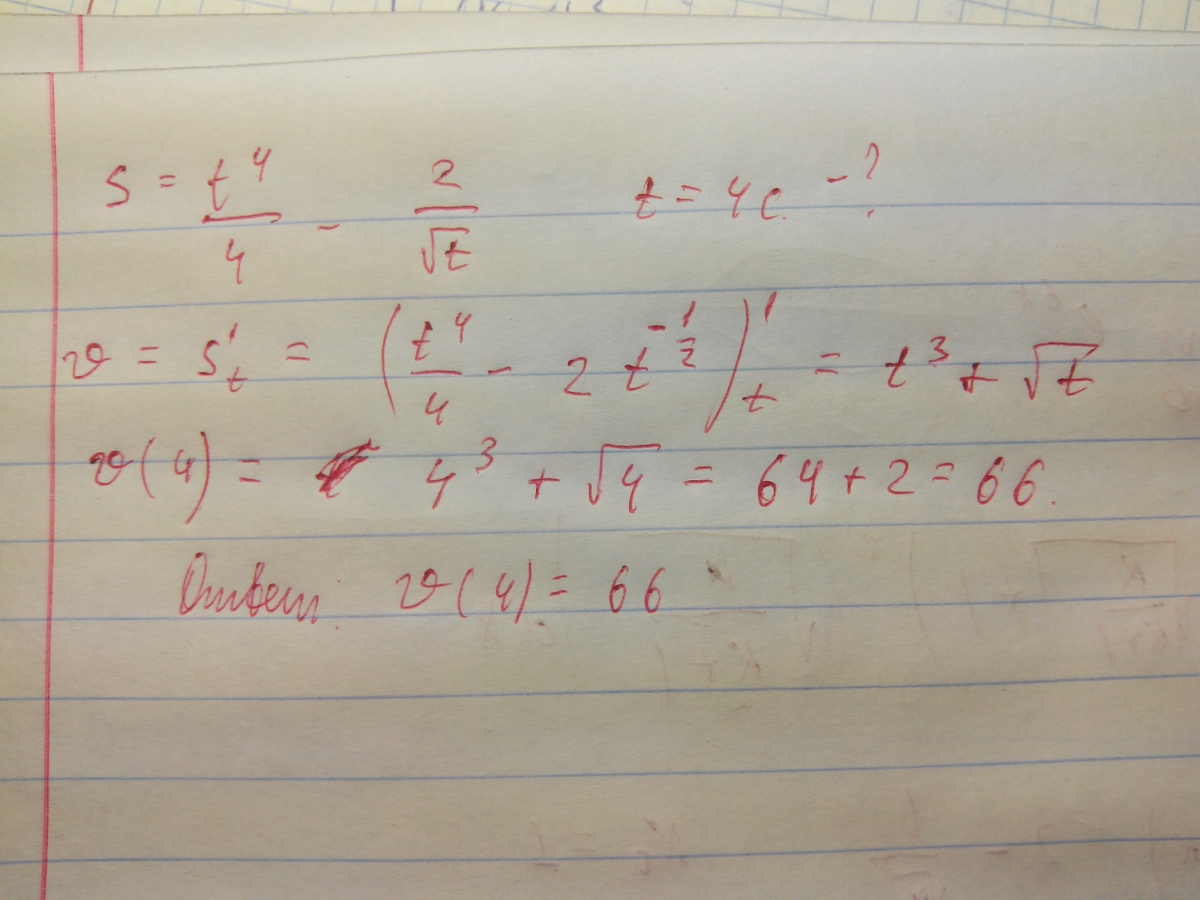 S = t^4/4 - 2/√t t = 4 с. - ?
v = S'_t = (t^4/4 - 2 t^(-1/2))'_t = t^3 + √t
v(4) = 4^3 + √4 = 64 + 2 = 66.
Ответ: v(4) = 66